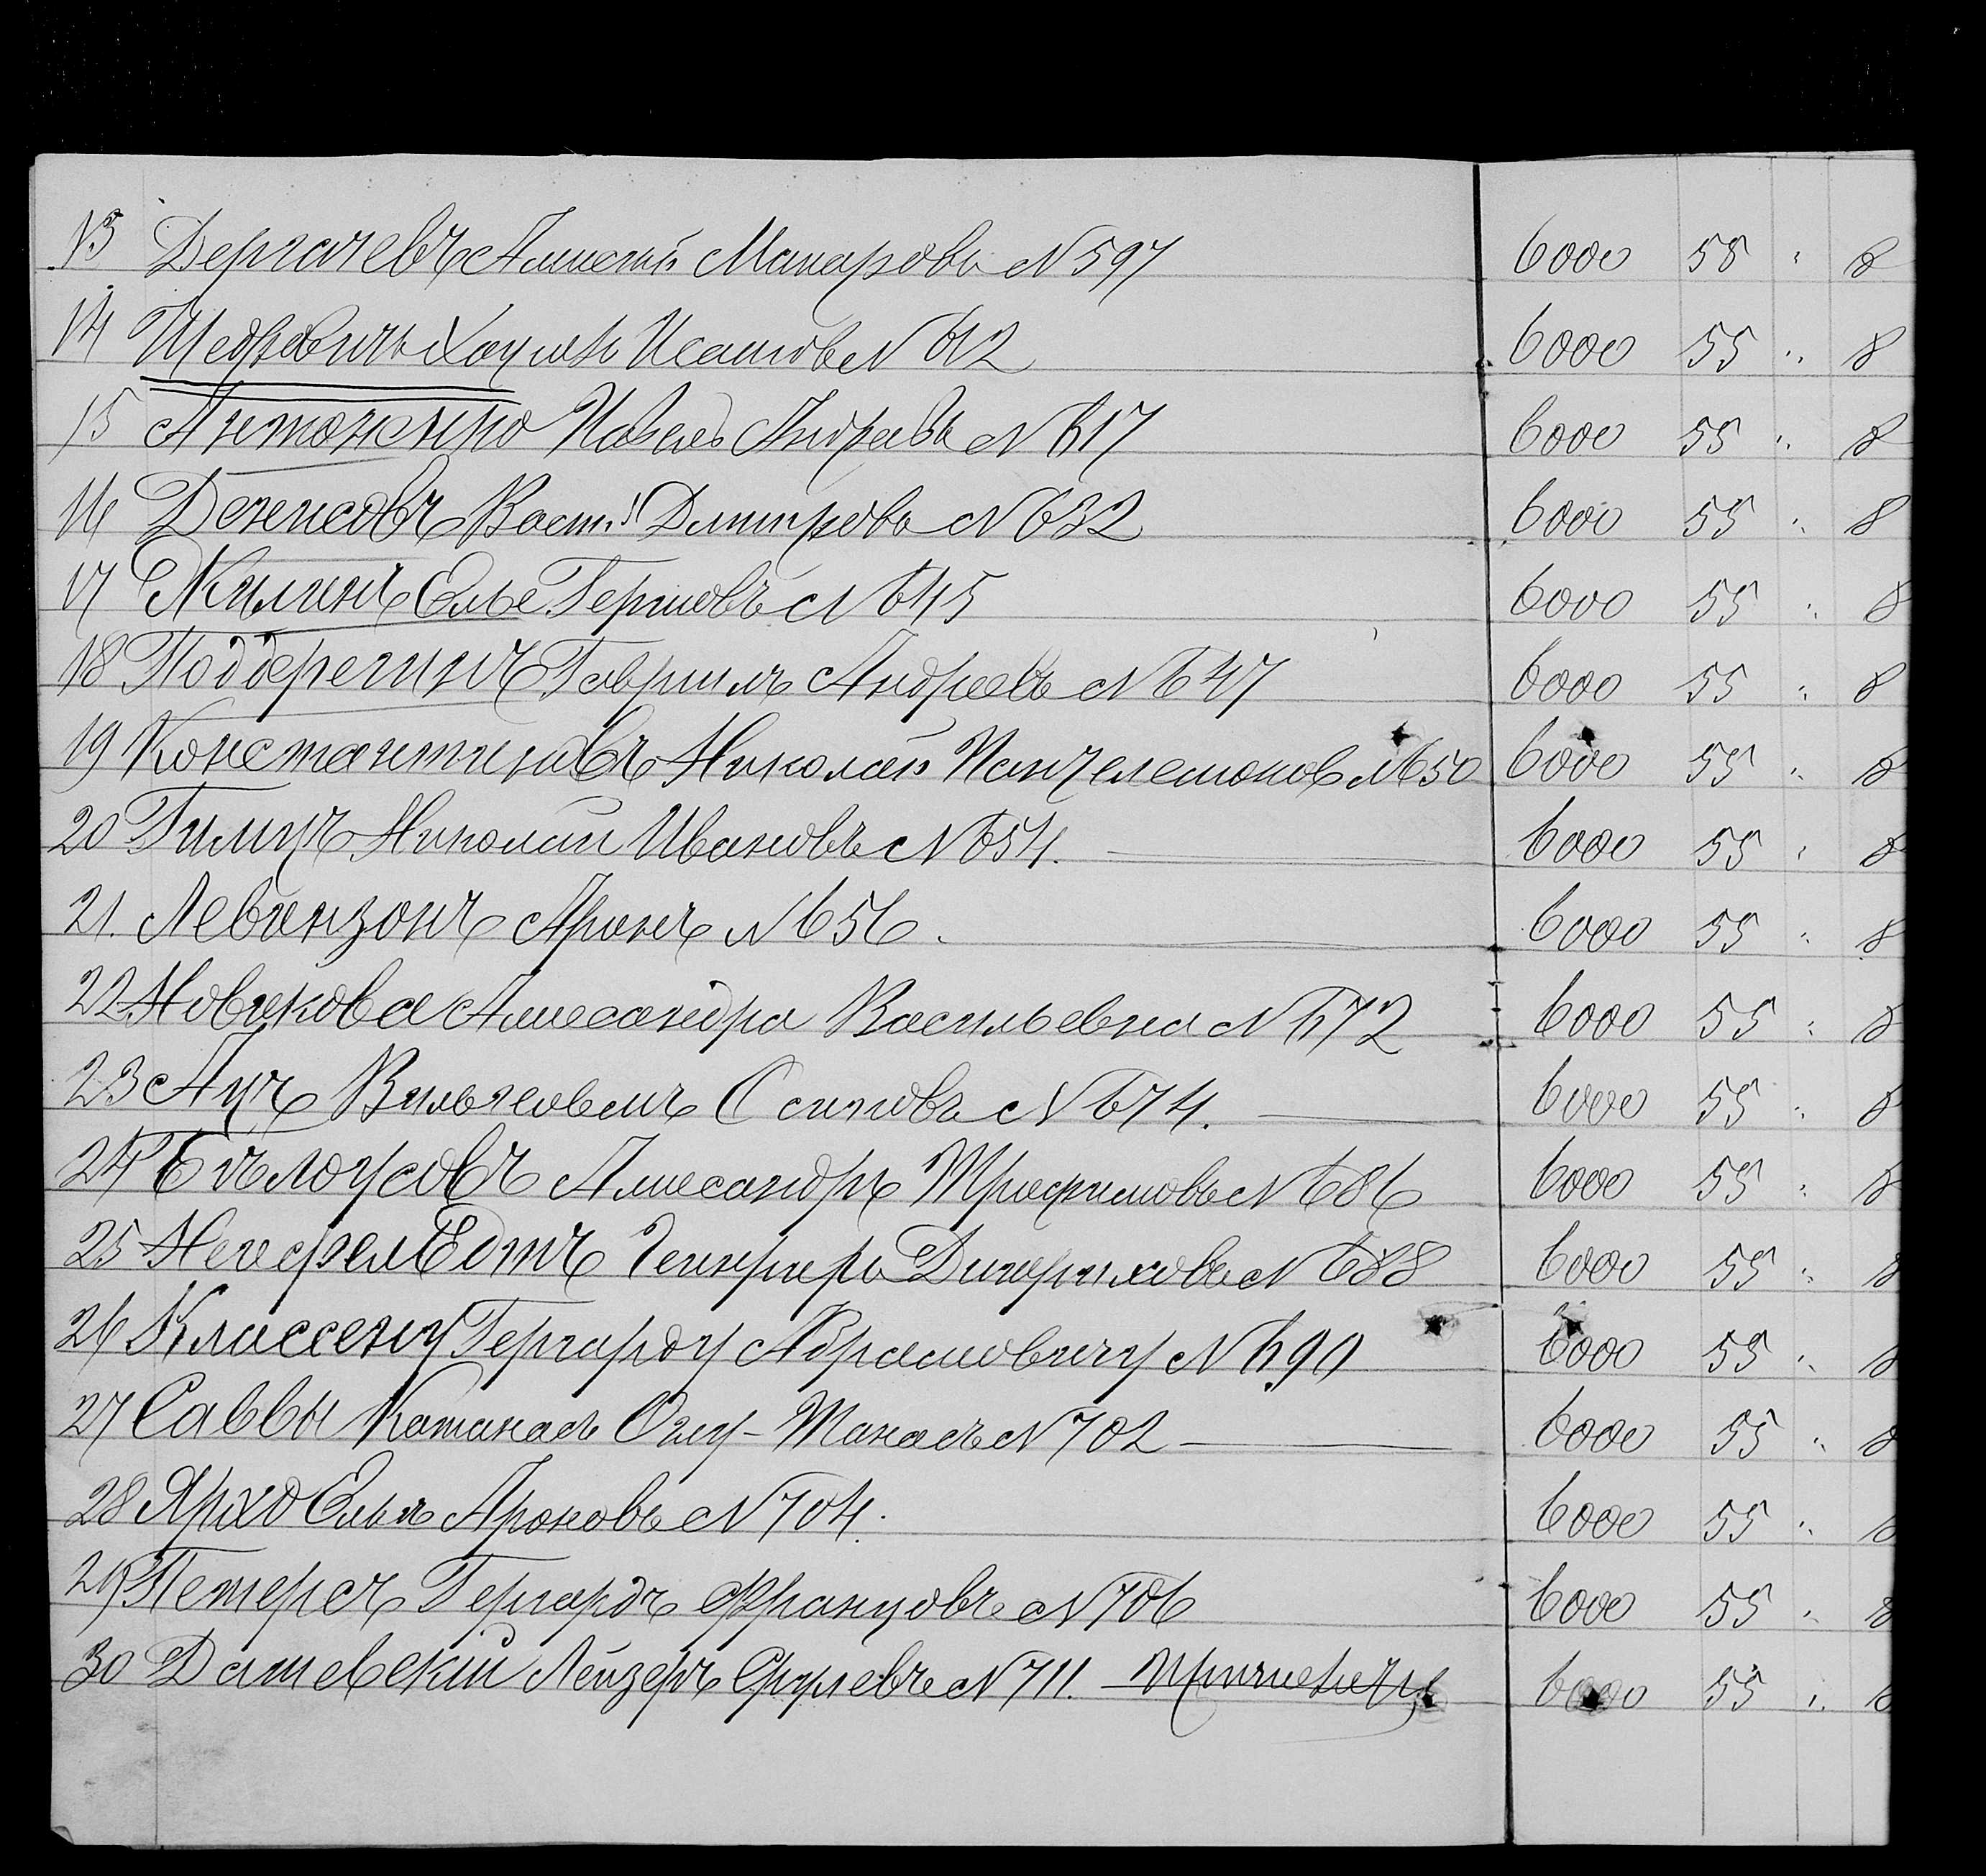 13 Дергачевъ Алексѣй Макаровъ N 597 6000 55 " 8
14 Щедровичъ Исаковъ N 612 6000 55 " 8
15 Антоненко Павелъ Андреевъ N 617 6000 55 " 8
16 Денисовъ Васил. Дмитровъ N 632 6000 55 " 8
17 Жилинъ Елье Гершовъ N 645 6000 55 " 8
18 Поддерегинъ Гавриилъ Андреевъ N 647 6000 55 " 8
19 Константиновъ Николай Пантелемонов N 650 6000 55 " 8
20 Николай Ивановъ N 654. 6000 55 " 8
21. Левинзонъ Аронъ N 656. 6000 55 " 8
22 Новикова Александра Васильевна N 672 6000 55 " 8
23 Вильгельмъ Осиповъ N 674. 6000 55 " 8
24 Бѣлоусовъ Александръ Трифимовъ N 686 6000 55 " 8
25 Дитриховъ N 688 6000 55 " 8
26 Классену Гергарду Абрамовичу N 690 6000 55 " 8
27 Саввы Катанасъ Оглу-Танасъ N 702 6000 55 " 8
28 Ярхо Елья Ароновъ N 704. 6000 55 " 8
29 Петерсъ Гергардъ Францовъ N 706 6000 55 " 8
30 Дашевскій Лейзеръ Срулевъ N 711. 6000 55 " 8